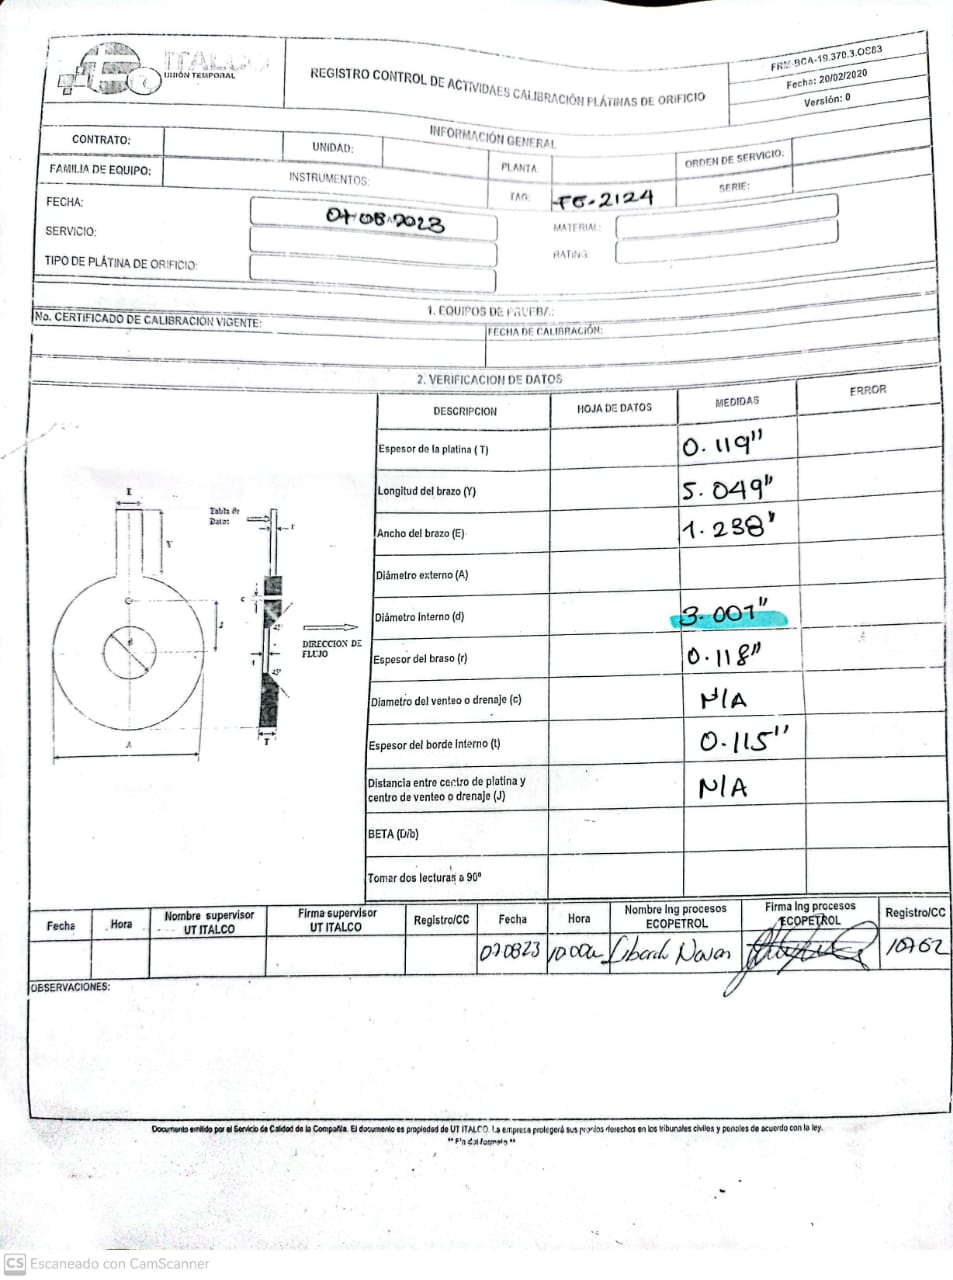 ITALCO
UNIÓN TEMPORAL
REGISTRO CONTROL DE ACTIVIDAES CALIBRACIÓN PLATINAS DE ORIFICIO
FRM-BCA-19.370.3.OS83
Fecha: 20/02/2020
Versión: 0
INFORMACIÓN GENERAL
CONTRATO:
UNIDAD:
PLANTA
ORDEN DE SERVICIO:
FAMILIA DE EQUIPO:
INSTRUMENTOS:
TAG:
FE-2124
SERIE:
FECHA:
07-08-2023
MATERIAL:
SERVICIO:
RATING
TIPO DE PLATINA DE ORIFICIO:
1. EQUIPOS DE PRUEBA:
No. CERTIFICADO DE CALIBRACION VIGENTE:
FECHA DE CALIBRACIÓN:
2. VERIFICACION DE DATOS
DESCRIPCION HOJA DE DATOS MEDIDAS ERROR
Espesor de la platina ( T) 0.119"
Longitud del brazo (Y) 5.049"
Ancho del brazo (E) 1.238"
Diámetro externo (A)
Diámetro Interno (d) 3.007"
Espesor del braso (r) 0.118"
Diametro del venteo o drenaje (c) N/A
Espesor del borde Interno (t) 0.115"
Distancia entre centro de platina y
centro de venteo o drenaje (J) N/A
BETA (D/b)
Tomar dos lecturas a 90º
E
Y
d
J
A
Tabla de
Datos
r
c
45°
t
45°
T
DIRECCION DE
FLUJO
Fecha Hora Nombre supervisor UT ITALCO Firma supervisor UT ITALCO Registro/CC Fecha Hora Nombre Ing procesos ECOPETROL Firma Ing procesos ECOPETROL Registro/CC
070823 10:00a Navas 10762
OBSERVACIONES:
Documento emitido por el Servicio de Calidad de la Compañía. El documento es propiedad de UT ITALCO. La empresa protegerá sus propios derechos en los tribunales civiles y penales de acuerdo con la ley.
** Fin del formato **
CS Escaneado con CamScanner